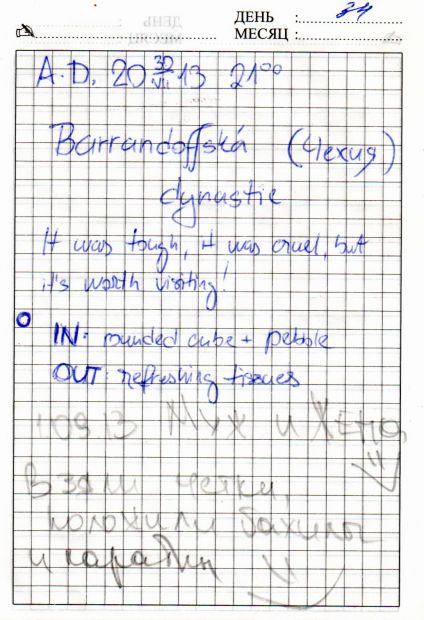 ДЕНЬ : 34
МЕСЯЦ :
A.D. 20 30/VII 13 21⁰⁰
Barrandoffská (Чехия)
dynastie
It was tough, it was cruel, but
it's worth visiting!
IN: rounded cube + pebble
OUT: refreshing tissues
09.13 Муж и Жена
Взяли
положили бахилы
и